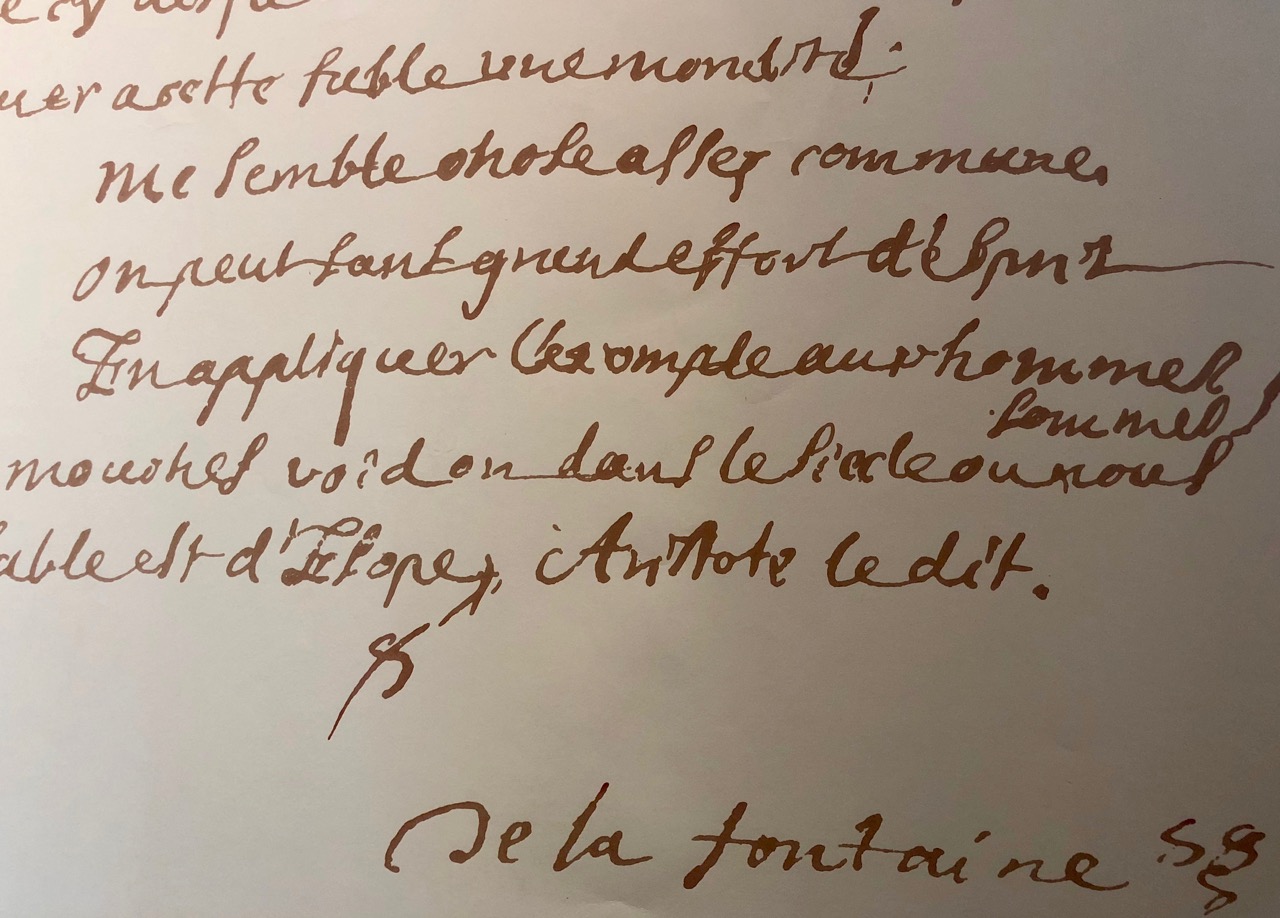 uer a cette fable une moralité
Me semble chose assez commune,
On peut sans grand effort d'esprit
En appliquer l'exemple aux hommes
sommes
mouches void on dans le siecle ou nous
able est d'Esope, Aristote le dit.
De la fontaine